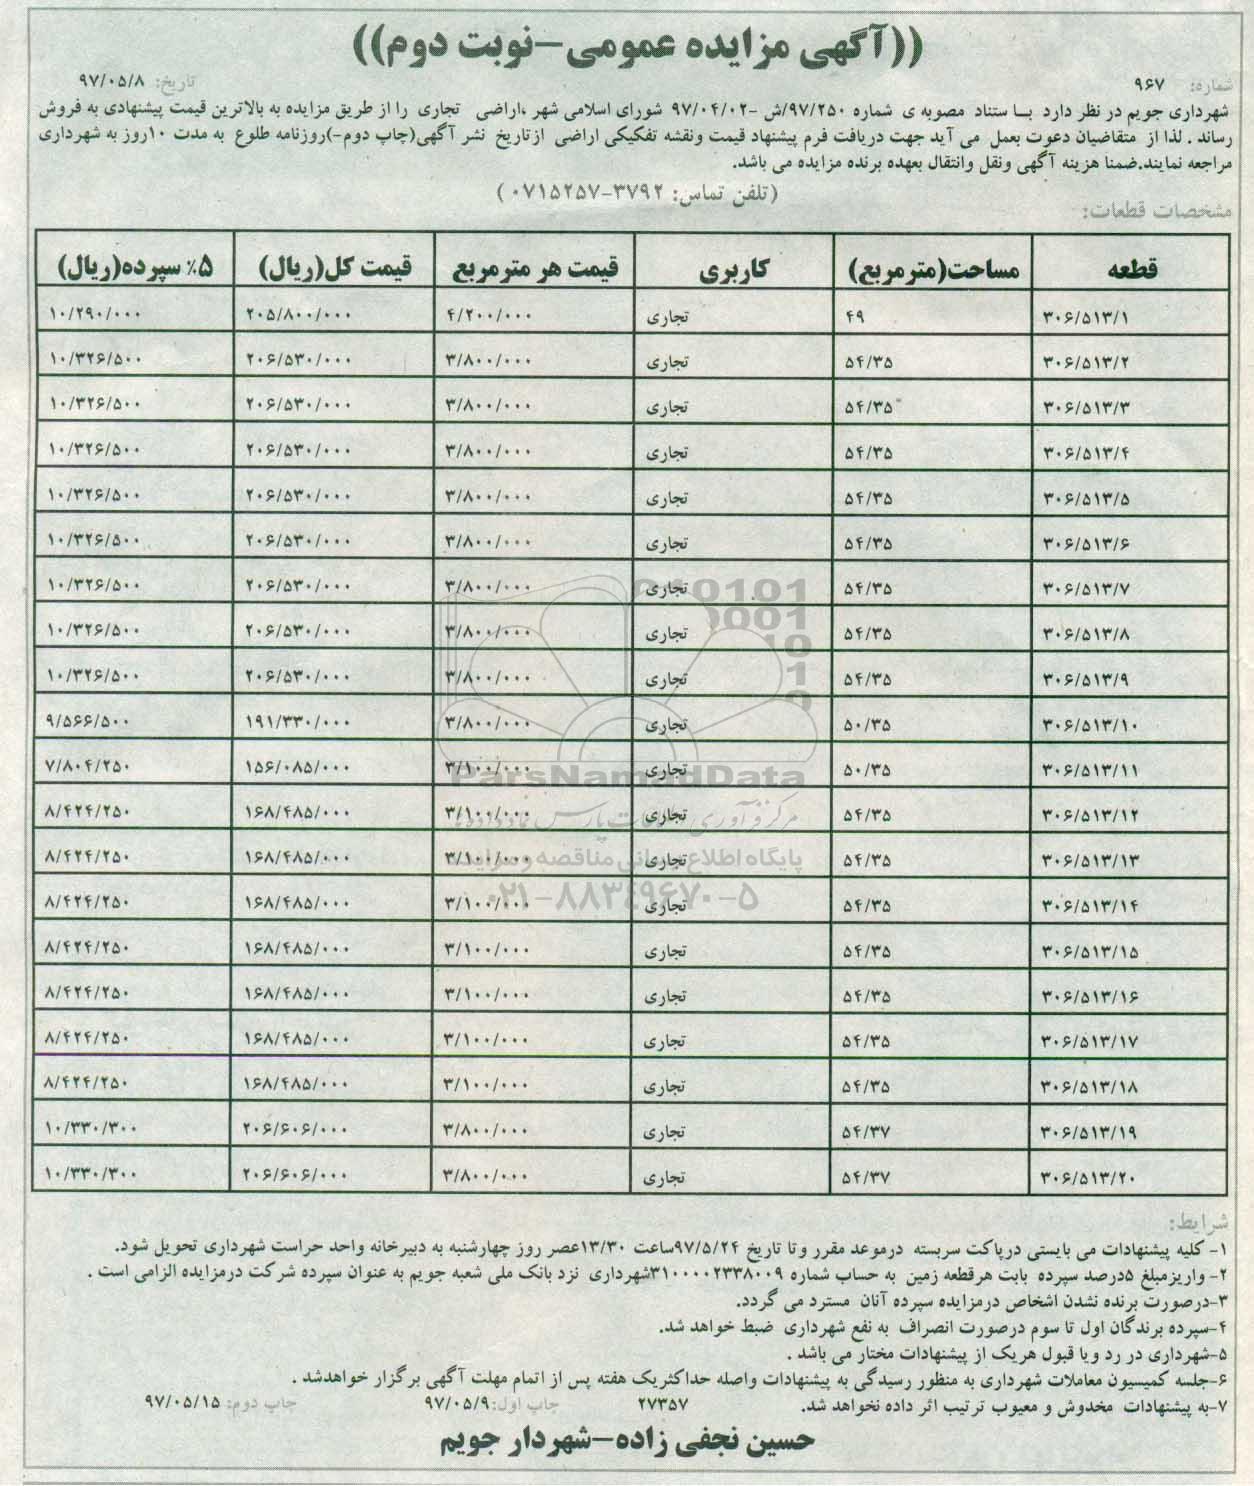 ((آگهی مزایده عمومی-نوبت دوم))
شماره: ۹۶۷
تاریخ: ۹۷/۰۵/۸
شهرداری جویم در نظر دارد با ستناد مصوبه ی شماره ۹۷/۲۵۰/ش -۹۷/۰۴/۰۲ شورای اسلامی شهر ،اراضی تجاری را از طریق مزایده به بالاترین قیمت پیشنهادی به فروش
رساند . لذا از متقاضیان دعوت بعمل می آید جهت دریافت فرم پیشنهاد قیمت ونقشه تفکیکی اراضی ازتاریخ نشر آگهی(چاپ دوم-)روزنامه طلوع به مدت ۱۰روز به شهرداری
مراجعه نمایند.ضمنا هزینه آگهی ونقل وانتقال بعهده برنده مزایده می باشد.
(تلفن تماس: ۳۷۹۲-۰۷۱۵۲۵۷)
مشخصات قطعات:
قطعه مساحت(مترمربع) کاربری قیمت هر مترمربع قیمت کل(ریال) ۵٪ سپرده(ریال)
۳۰۶/۵۱۳/۱ ۴۹ تجاری ۴/۲۰۰/۰۰۰ ۲۰۵/۸۰۰/۰۰۰ ۱۰/۲۹۰/۰۰۰
۳۰۶/۵۱۳/۲ ۵۴/۳۵ تجاری ۳/۸۰۰/۰۰۰ ۲۰۶/۵۳۰/۰۰۰ ۱۰/۳۲۶/۵۰۰
۳۰۶/۵۱۳/۳ ۵۴/۳۵ تجاری ۳/۸۰۰/۰۰۰ ۲۰۶/۵۳۰/۰۰۰ ۱۰/۳۲۶/۵۰۰
۳۰۶/۵۱۳/۴ ۵۴/۳۵ تجاری ۳/۸۰۰/۰۰۰ ۲۰۶/۵۳۰/۰۰۰ ۱۰/۳۲۶/۵۰۰
۳۰۶/۵۱۳/۵ ۵۴/۳۵ تجاری ۳/۸۰۰/۰۰۰ ۲۰۶/۵۳۰/۰۰۰ ۱۰/۳۲۶/۵۰۰
۳۰۶/۵۱۳/۶ ۵۴/۳۵ تجاری ۳/۸۰۰/۰۰۰ ۲۰۶/۵۳۰/۰۰۰ ۱۰/۳۲۶/۵۰۰
۳۰۶/۵۱۳/۷ ۵۴/۳۵ تجاری ۳/۸۰۰/۰۰۰ ۲۰۶/۵۳۰/۰۰۰ ۱۰/۳۲۶/۵۰۰
۳۰۶/۵۱۳/۸ ۵۴/۳۵ تجاری ۳/۸۰۰/۰۰۰ ۲۰۶/۵۳۰/۰۰۰ ۱۰/۳۲۶/۵۰۰
۳۰۶/۵۱۳/۹ ۵۴/۳۵ تجاری ۳/۸۰۰/۰۰۰ ۲۰۶/۵۳۰/۰۰۰ ۱۰/۳۲۶/۵۰۰
۳۰۶/۵۱۳/۱۰ ۵۰/۳۵ تجاری ۳/۸۰۰/۰۰۰ ۱۹۱/۳۳۰/۰۰۰ ۹/۵۶۶/۵۰۰
۳۰۶/۵۱۳/۱۱ ۵۰/۳۵ تجاری ۳/۱۰۰/۰۰۰ ۱۵۶/۰۸۵/۰۰۰ ۷/۸۰۴/۲۵۰
۳۰۶/۵۱۳/۱۲ ۵۴/۳۵ تجاری ۳/۱۰۰/۰۰۰ ۱۶۸/۴۸۵/۰۰۰ ۸/۴۲۴/۲۵۰
۳۰۶/۵۱۳/۱۳ ۵۴/۳۵ تجاری ۳/۱۰۰/۰۰۰ ۱۶۸/۴۸۵/۰۰۰ ۸/۴۲۴/۲۵۰
۳۰۶/۵۱۳/۱۴ ۵۴/۳۵ تجاری ۳/۱۰۰/۰۰۰ ۱۶۸/۴۸۵/۰۰۰ ۸/۴۲۴/۲۵۰
۳۰۶/۵۱۳/۱۵ ۵۴/۳۵ تجاری ۳/۱۰۰/۰۰۰ ۱۶۸/۴۸۵/۰۰۰ ۸/۴۲۴/۲۵۰
۳۰۶/۵۱۳/۱۶ ۵۴/۳۵ تجاری ۳/۱۰۰/۰۰۰ ۱۶۸/۴۸۵/۰۰۰ ۸/۴۲۴/۲۵۰
۳۰۶/۵۱۳/۱۷ ۵۴/۳۵ تجاری ۳/۱۰۰/۰۰۰ ۱۶۸/۴۸۵/۰۰۰ ۸/۴۲۴/۲۵۰
۳۰۶/۵۱۳/۱۸ ۵۴/۳۵ تجاری ۳/۱۰۰/۰۰۰ ۱۶۸/۴۸۵/۰۰۰ ۸/۴۲۴/۲۵۰
۳۰۶/۵۱۳/۱۹ ۵۴/۳۷ تجاری ۳/۸۰۰/۰۰۰ ۲۰۶/۶۰۶/۰۰۰ ۱۰/۳۳۰/۳۰۰
۳۰۶/۵۱۳/۲۰ ۵۴/۳۷ تجاری ۳/۸۰۰/۰۰۰ ۲۰۶/۶۰۶/۰۰۰ ۱۰/۳۳۰/۳۰۰
ParsNamadData
پایگاه اطلاع رسانی مناقصه و مزایده
۰۲۱-۸۸۳۴۹۶۷۰-۵
شرایط:
۱- کلیه پیشنهادات می بایستی درپاکت سربسته درموعد مقرر وتا تاریخ ۹۷/۵/۲۴ساعت ۱۳/۳۰عصر روز چهارشنبه به دبیرخانه واحد حراست شهرداری تحویل شود.
۲- واریزمبلغ ۵درصد سپرده بابت هرقطعه زمین به حساب شماره ۳۱۰۰۰۰۲۳۳۸۰۰۹شهرداری نزد بانک ملی شعبه جویم به عنوان سپرده شرکت درمزایده الزامی است .
۳-درصورت برنده نشدن اشخاص درمزایده سپرده آنان مسترد می گردد.
۴-سپرده برندگان اول تا سوم درصورت انصراف به نفع شهرداری ضبط خواهد شد.
۵-شهرداری در رد ویا قبول هریک از پیشنهادات مختار می باشد .
۶-جلسه کمیسیون معاملات شهرداری به منظور رسیدگی به پیشنهادات واصله حداکثریک هفته پس از اتمام مهلت آگهی برگزار خواهدشد .
۷-به پیشنهادات مخدوش و معیوب ترتیب اثر داده نخواهد شد. ۲۷۳۵۷ چاپ اول:۹۷/۰۵/۹ چاپ دوم: ۹۷/۰۵/۱۵
حسین نجفی زاده-شهردار جویم